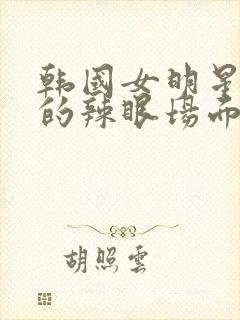 韩国女明星
的辣眼场面
胡照雲